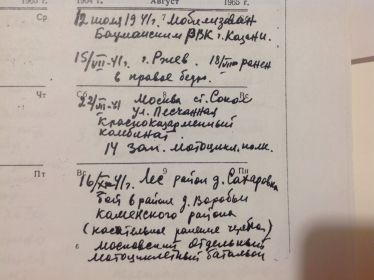 1965 г.
Ср
Август
12 июля 1941 г. Мобилизован
Бауманским РВК г. Казани.
15/VII-41 г. г. Ржев. 18/VIII ранен
в правое бедро.
Чт
22/VII-41 Москва ст. Сокол
ул. Песчанная
Краснокazарменный
комбинат
14 зап. мотоцикл. полк.
Пт
Вт
9
Пн
16/XII-41 г. Лес район д. Сахаровка
бой в районе д. Воробьи
Каменского района
(касательное ранение черепа)
6
Московский отдельный
мотоциклетный батальон